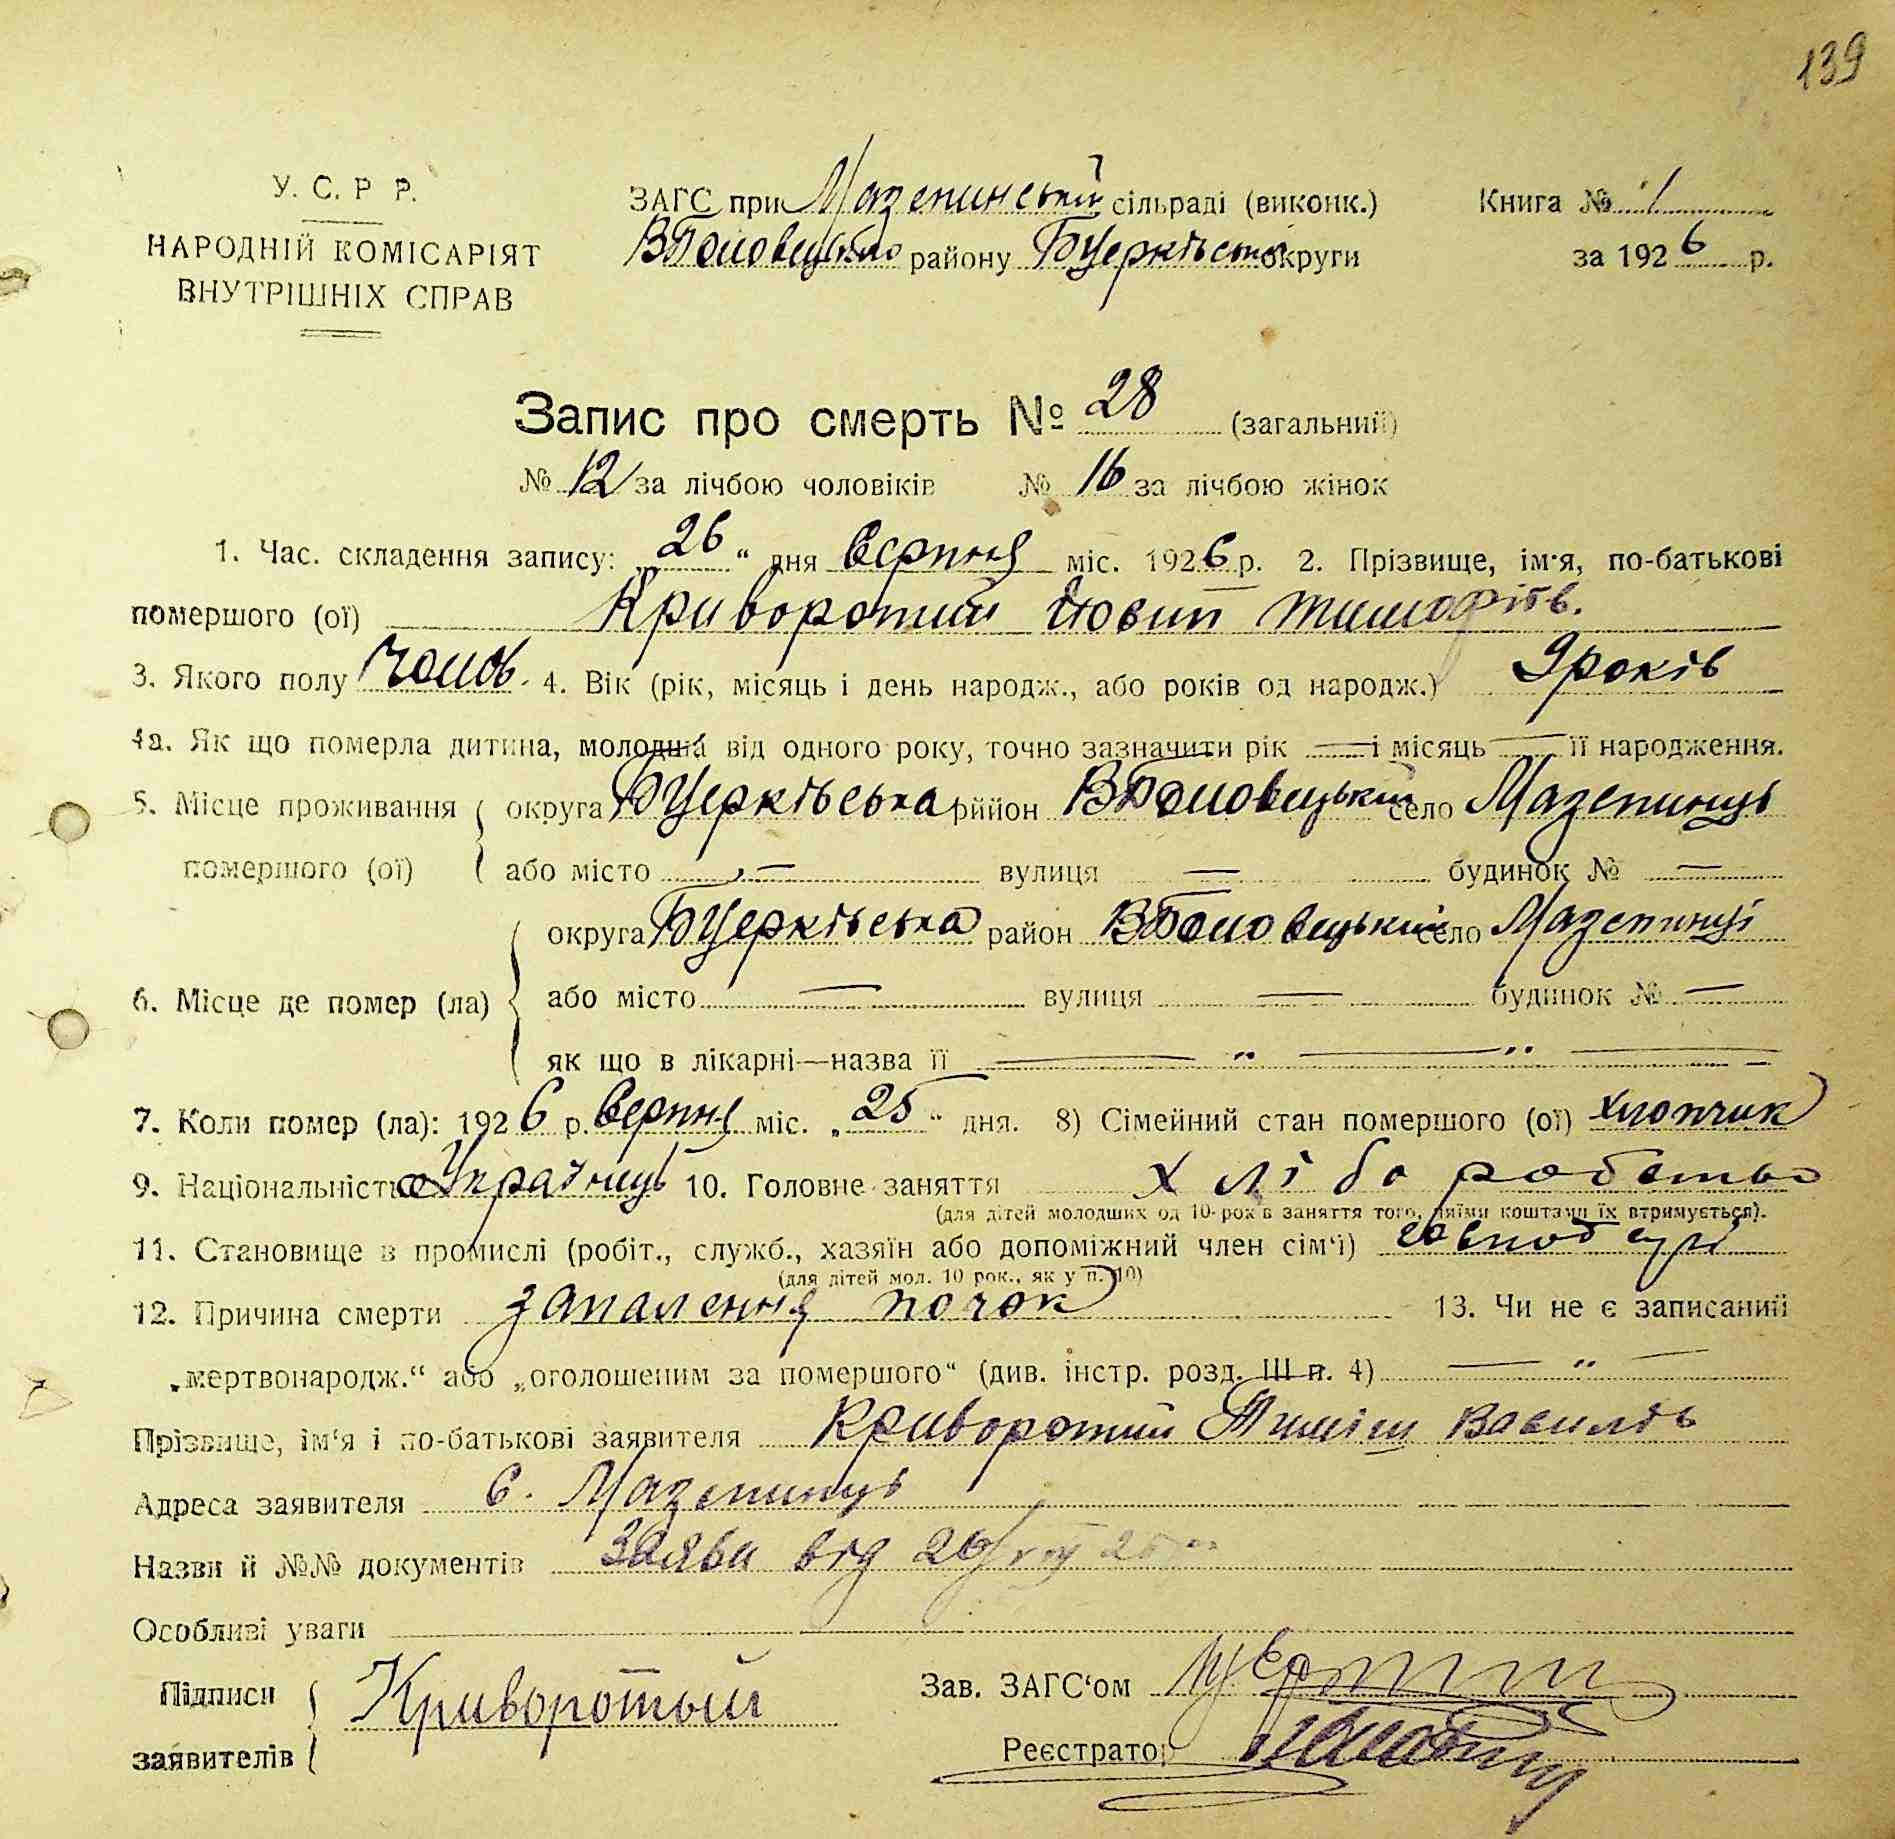 139
У. С. Р Р.
НАРОДНІЙ КОМІСАРІЯТ
ВНУТРІШНІХ СПРАВ
ЗАГС при Мазепинській сільраді (виконк.)
ВПоловецького району БЦерківської округи
Книга № 1
за 1926 р.
Запис про смерть № 28 (загальний)
№ 12 за лічбою чоловіків № 16 за лічбою жінок
1. Час. складення запису: „26“ дня серпня міс. 1926 р. 2. Прізвище, ім'я, по-батькові
помершого (ої) Криворотий Йосип Тимофіів.
3. Якого полу Чолов. 4. Вік (рік, місяць і день народж., або років од народж.) 9 років
4а. Як що померла дитина, молодша від одного року, точно зазначити рік — і місяць — її народження.
5. Місце проживання помершого (ої) округа БЦерківська рййон ВПоловецький село Мазепинці
або місто — вулиця — будинок № —
6. Місце де помер (ла) округа БЦерківська район ВПоловецький село Мазепинці
або місто — вулиця — будинок № —
як що в лікарні—назва її — „ — „ —
7. Коли помер (ла): 1926 р. серпня міс. „25“ дня. 8) Сімейний стан помершого (ої) хлопчик
9. Національність Українець 10. Головне заняття хліборобство
(для дітей молодших од 10-років заняття того, чиїми коштами їх втримується).
11. Становище в промислі (робіт., служб., хазяїн або допоміжний член сім'ї)
(для дітей мол. 10 рок., як у п. 10)
12. Причина смерти запалення почок 13. Чи не є записаний
„мертвонародж.“ або „оголошеним за помершого“ (див. інстр. розд. III п. 4) — „ —
Прізвище, ім'я і по-батькові заявителя Криворотий Тиміш Василів
Адреса заявителя с. Мазепинці
Назви й №№ документів Заява від 26/VIII
Особливі уваги
Підписи заявителів Криворотый
Зав. ЗАГС'ом
Реєстратор